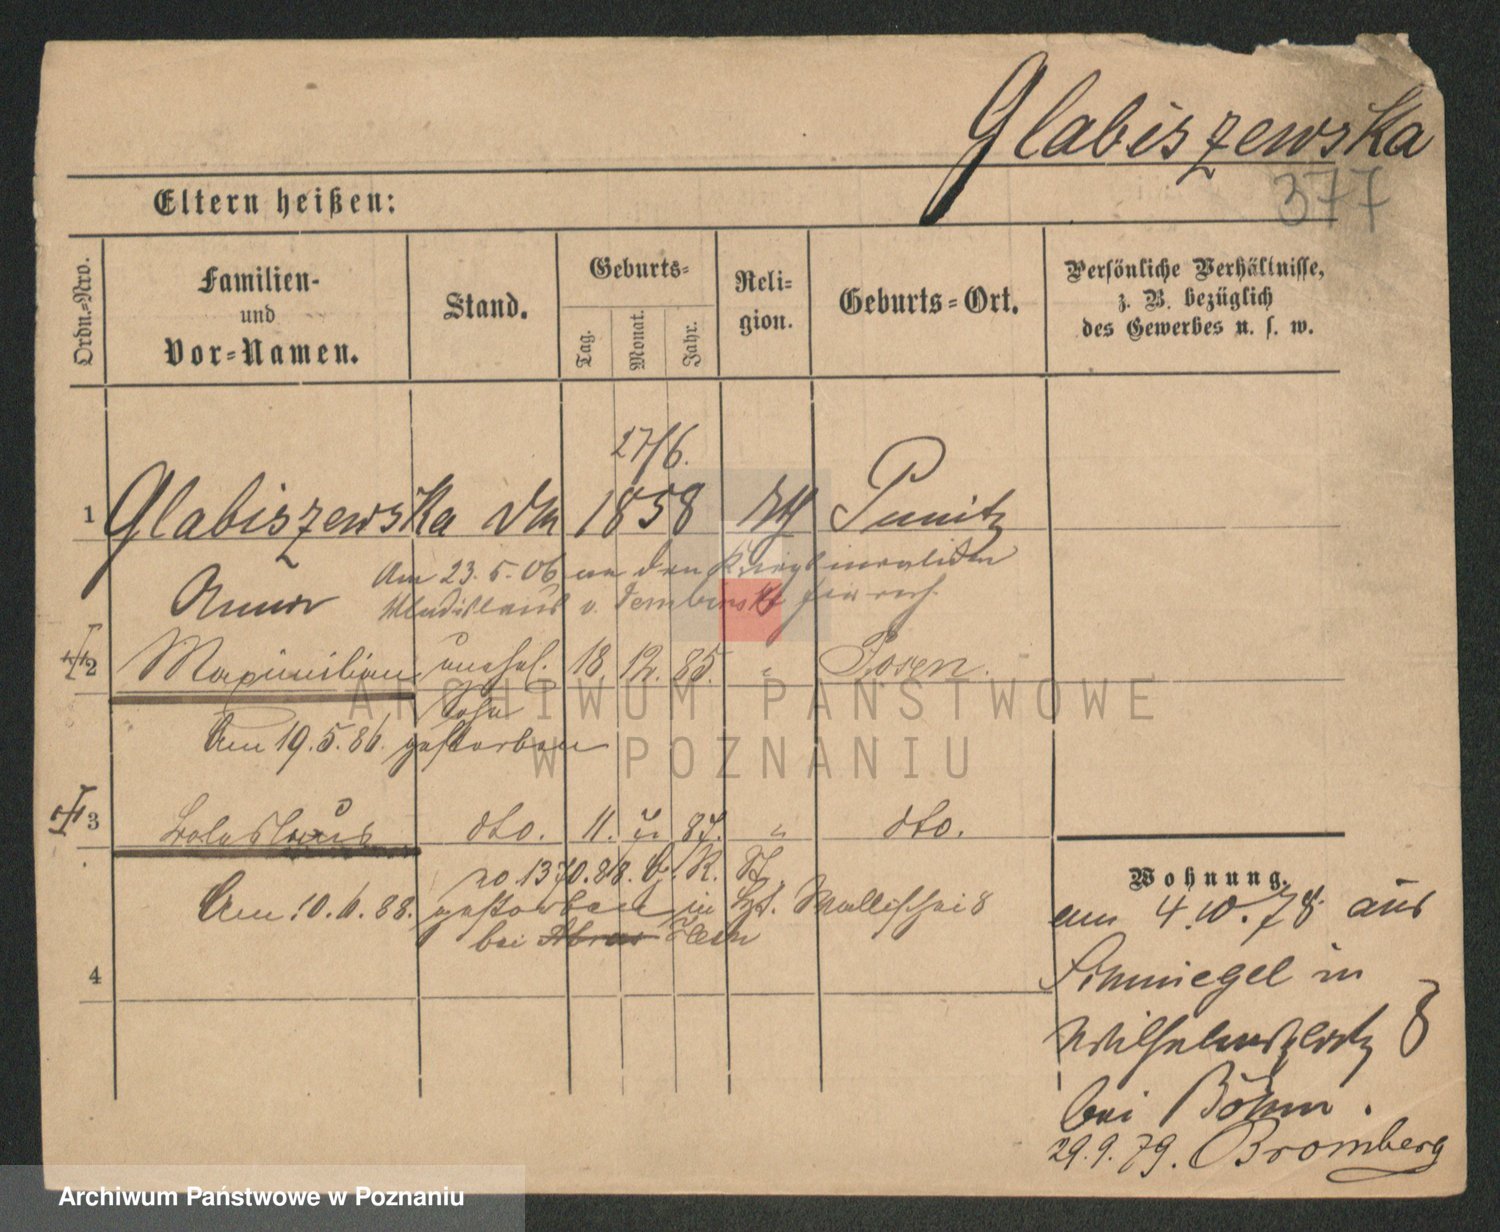 Glabiszewska
377
Eltern heißen:
Ordn.-Nro.
Familien-
und
Vor-Namen.
Stand.
Geburts-
Tag.
Monat.
Jahr.
Reli-
gion.
Geburts-Ort.
Persönliche Verhältnisse,
z. B. bezüglich
des Gewerbes u. s. w.
27/6.
1 Glabiszewska 1858 Punitz
Am 23.5.06 an den Kriegsinvaliden
Anna Wladislaus v. Dembinski
2 Maximilian unehel. 18. 12. 85. " Posen.
Sohn
Am 19.5.86. gestorben
3 Boleslaus dto. 11. 87. " dto.
no 1370.88.
Am 10.6.88. gestorben in Wallischei 8
bei
4
Wohnung.
am 4.10.78 aus
Schmiegel in
Wilhelmsplatz 8
bei Böhm.
29.9.79. Bromberg
ARCHIWUM PAŃSTWOWE
W POZNANIU
Archiwum Państwowe w Poznaniu